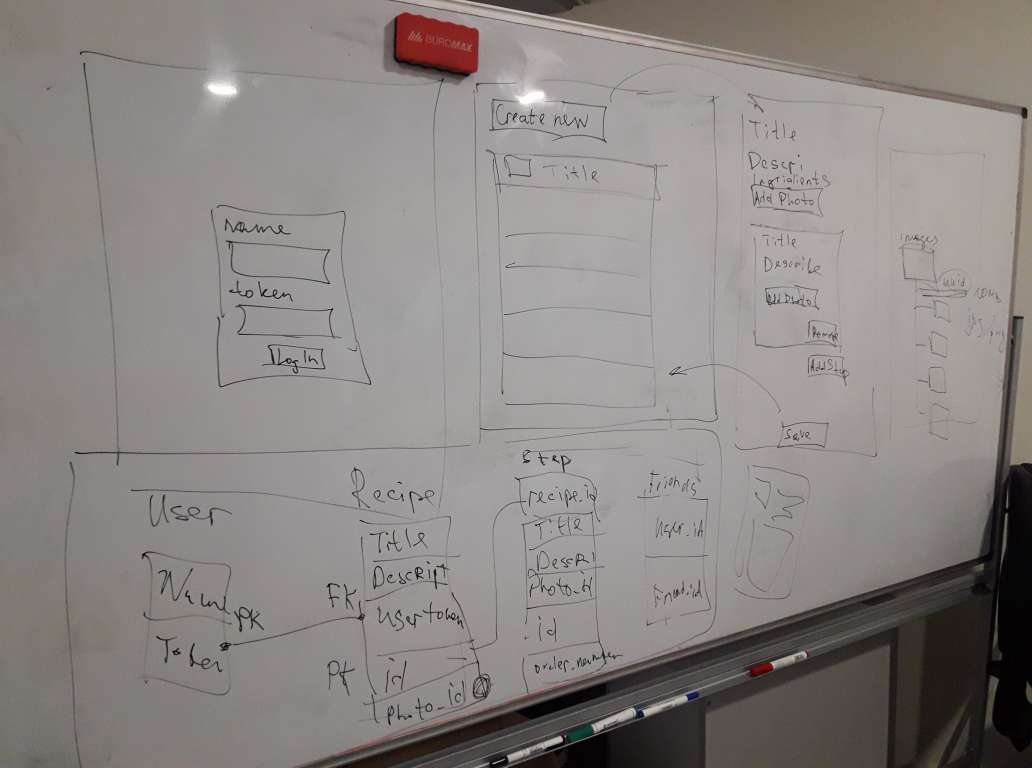 BUROMAX
Name
token
Log In
Create new
Title
Title
Descri
Ingridients
Add Photo
Title
Describe
Add Photo
Remove
Add Step
Save
images
uuid
User
Name
Token
PK
Recipe
Title
Descript
FK
user token
id
photo_id
Step
recipe.id
Title
Descri
Photo_id
id
order_number
Friends
User_id
Friend.id